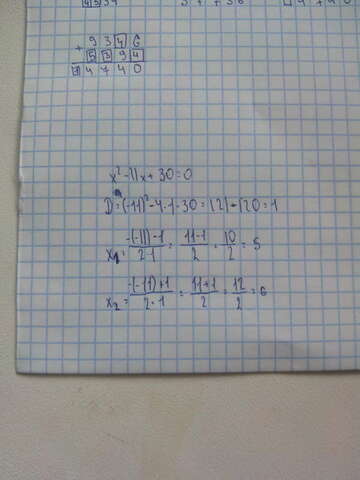 + 9 3 4 6
5 3 9 4
1 4 7 4 0
x² - 11x + 30 = 0
D = (-11)² - 4 · 1 · 30 = 121 - 120 = 1
x₁ = -(-11) - 1 / 2 · 1 = 11 - 1 / 2 = 10 / 2 = 5
x₂ = -(-11) + 1 / 2 · 1 = 11 + 1 / 2 = 12 / 2 = 6